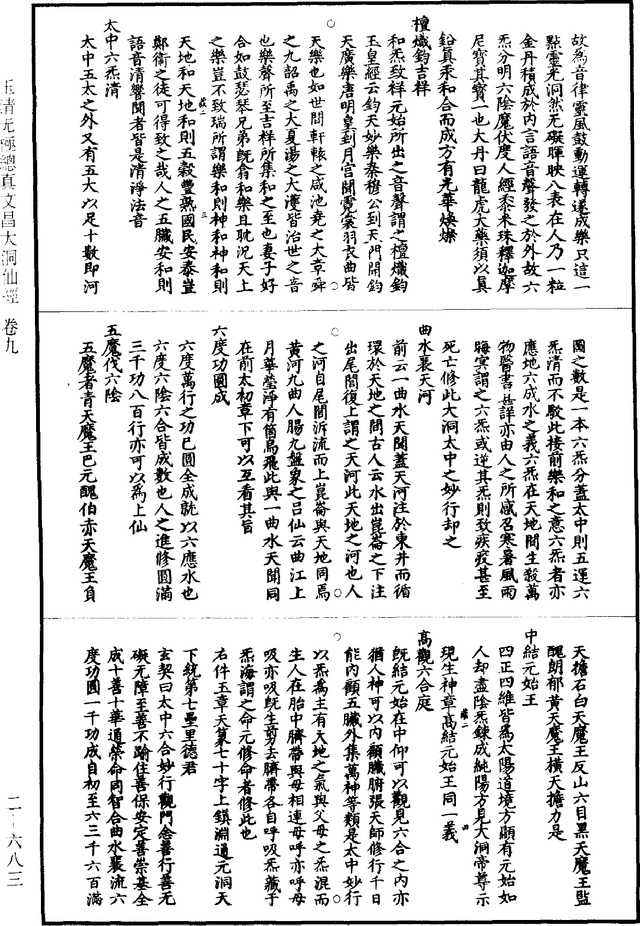 故為音律靈風鼓動運轉遂成樂只這一
點靈光洞然无礙暉映八表在人乃一粒
金丹積成於內言語音聲發之於外故六
炁分明六陰魔伏度人經黍米珠釋迦摩
尼寶其實一也大丹曰龍虎大藥須以真
鉛真汞和合而成方有光華煥燦
檀熾鈞吉祥
和炁致祥元始所出之音聲謂之檀熾鈞
玉皇經云鈞天妙樂秦穆公到天門聞鈞
天廣樂唐明皇到月宮聞霓裳羽衣曲皆
天樂也如世間軒轅之咸池堯之大章舜
之九韶禹之大夏湯之大濩皆治世之音
也樂聲所至吉祥所集和之至也妻子好
合如鼓瑟琴兄弟既翕和樂且耽況天上
之樂豈不致瑞所謂樂和則神和神和則
天地和天地和則五穀豐熟國民安泰豈
鄭衛之徒可得致之哉人之五臟安和則
語音清響聞者皆是清淨法音
太中六炁清
太中五太之外又有五大以足十數即河
圖之數是一本六炁分蓋太中則五運六
炁清而不駁此接前樂和之意六炁者亦
應地六成水之義六炁在天地間生殺萬
物醫書甚詳亦由人之所感召寒暑風雨
晦冥謂之六炁或逆其炁則致疾疫甚至
死亡修此大洞太中之妙行却之
曲水裹天河
前云一曲水天開蓋天河注於東井而循
環於天地之間古人云水出崑崙之下注
出尾閭復上謂之天河此天地之河也人
之河自尾閭泝流而上崑崙與天地同焉
黃河九曲人腸九盤象之呂仙云曲江上
月華瑩淨有箇烏飛此與一曲水天開同
在前太初章下可以互看其旨
六度功圓成
六度萬行之功已圓全成就以六應水也
六度六陰六合皆成數也人之進修圓滿
三千功八百行亦可以為上仙
五魔伐六陰
五魔者青天魔王巴元醜伯赤天魔王負
天擔石白天魔王反山六目黑天魔王監
醜朗郁黃天魔王橫天擔力是
中結元始王
四正四維皆為太陽道境方顯有元始如
人却盡陰炁鍊成純陽方見大洞帝尊示
現生神章高結元始王同一義
高觀六合庭
既結元始在中仰可以觀見六合之內亦
猶人神可以內顧臟腑張天師修行千日
能內顧五臟外集萬神等類是太中妙行
以炁為主有天地之氣與父母之炁混而
生人在胎中臍帶與母相連母呼亦呼母
吸亦吸既生剪去臍帶各自呼吸炁藏于
炁海謂之命元修命者修此也
右件玉章天篆七十字上鎮淵通元洞天
下統第七壘里德君
玄契曰太中六合妙行觀門念善行善无
礙无障至善不踰住善保安定善崇基全
成十善十華通榮命同智合曲水裹流六
度功圓一千功成自初至六三千六百滿
玉清无極總真文昌大洞仙經 卷九
二—六八三